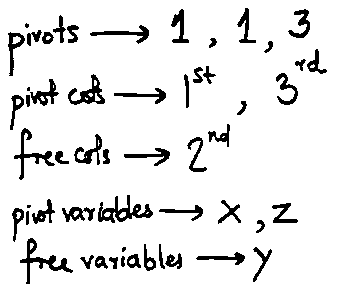 pivots → 1, 1, 3
pivot cols → 1st, 3rd
free cols → 2nd
pivot variables → x, z
free variables → y